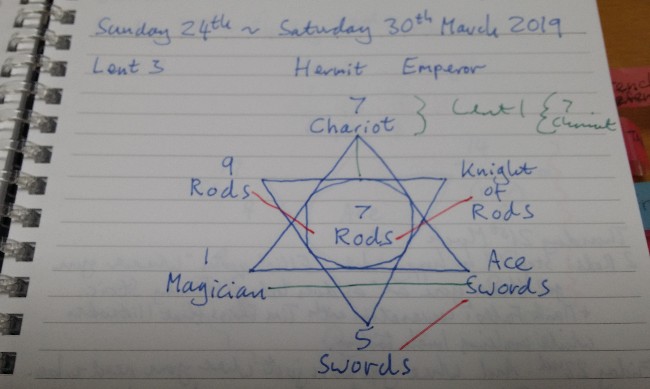 Sunday 24th ~ Saturday 30th March 2019
Lent 3 Hermit Emperor
7
Chariot } Lent 1 { 7
Chariot
9
Rods
Knight
of
Rods
7
Rods
1
Magician
Ace
Swords
5
Swords